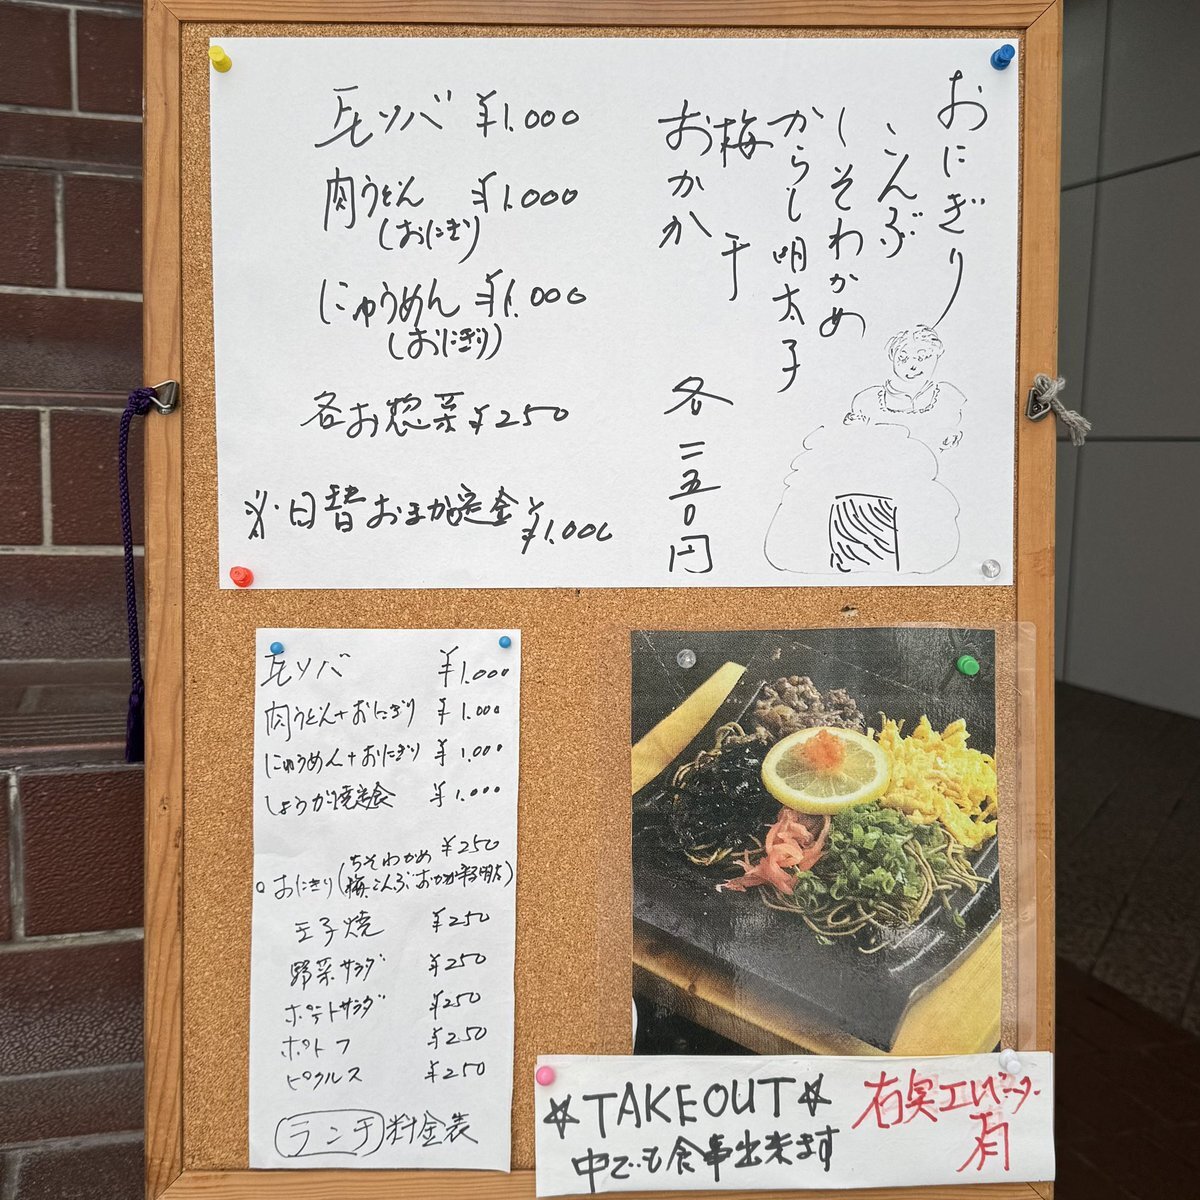 瓦ソバ ¥1.000
肉うどん ¥1.000
(おにぎり)
にゅうめん ¥1.000
(おにぎり)
各お惣菜 ¥250
※・日替おまかせ定食 ¥1.000
おにぎり
こんぶ
しそわかめ
からし明太子
梅干
おかか
各二五〇円
瓦ソバ ¥1.000
肉うどん+おにぎり ¥1.000
にゅうめん+おにぎり ¥1.000
しょうが焼定食 ¥1.000
ちそわかめ ¥250
○おにぎり(梅、こんぶ、おかか
玉子焼 ¥250
野菜サラダ ¥250
ポテトサラダ ¥250
ポトフ ¥250
ピクルス ¥250
ランチ料金表
☆TAKEOUT☆
中でも食事出来ます
右奥エレベーター
有